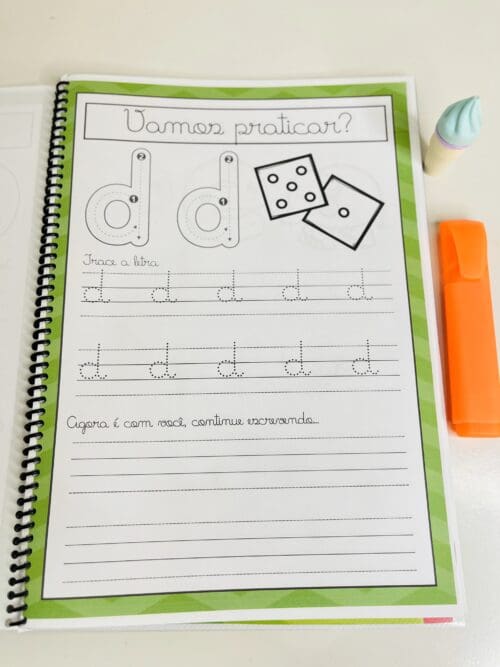 Vamos praticar?
d d
2 2
1 1
Trace a letra
d d d d d
d d d d d
Agora é com você, continue escrevendo...